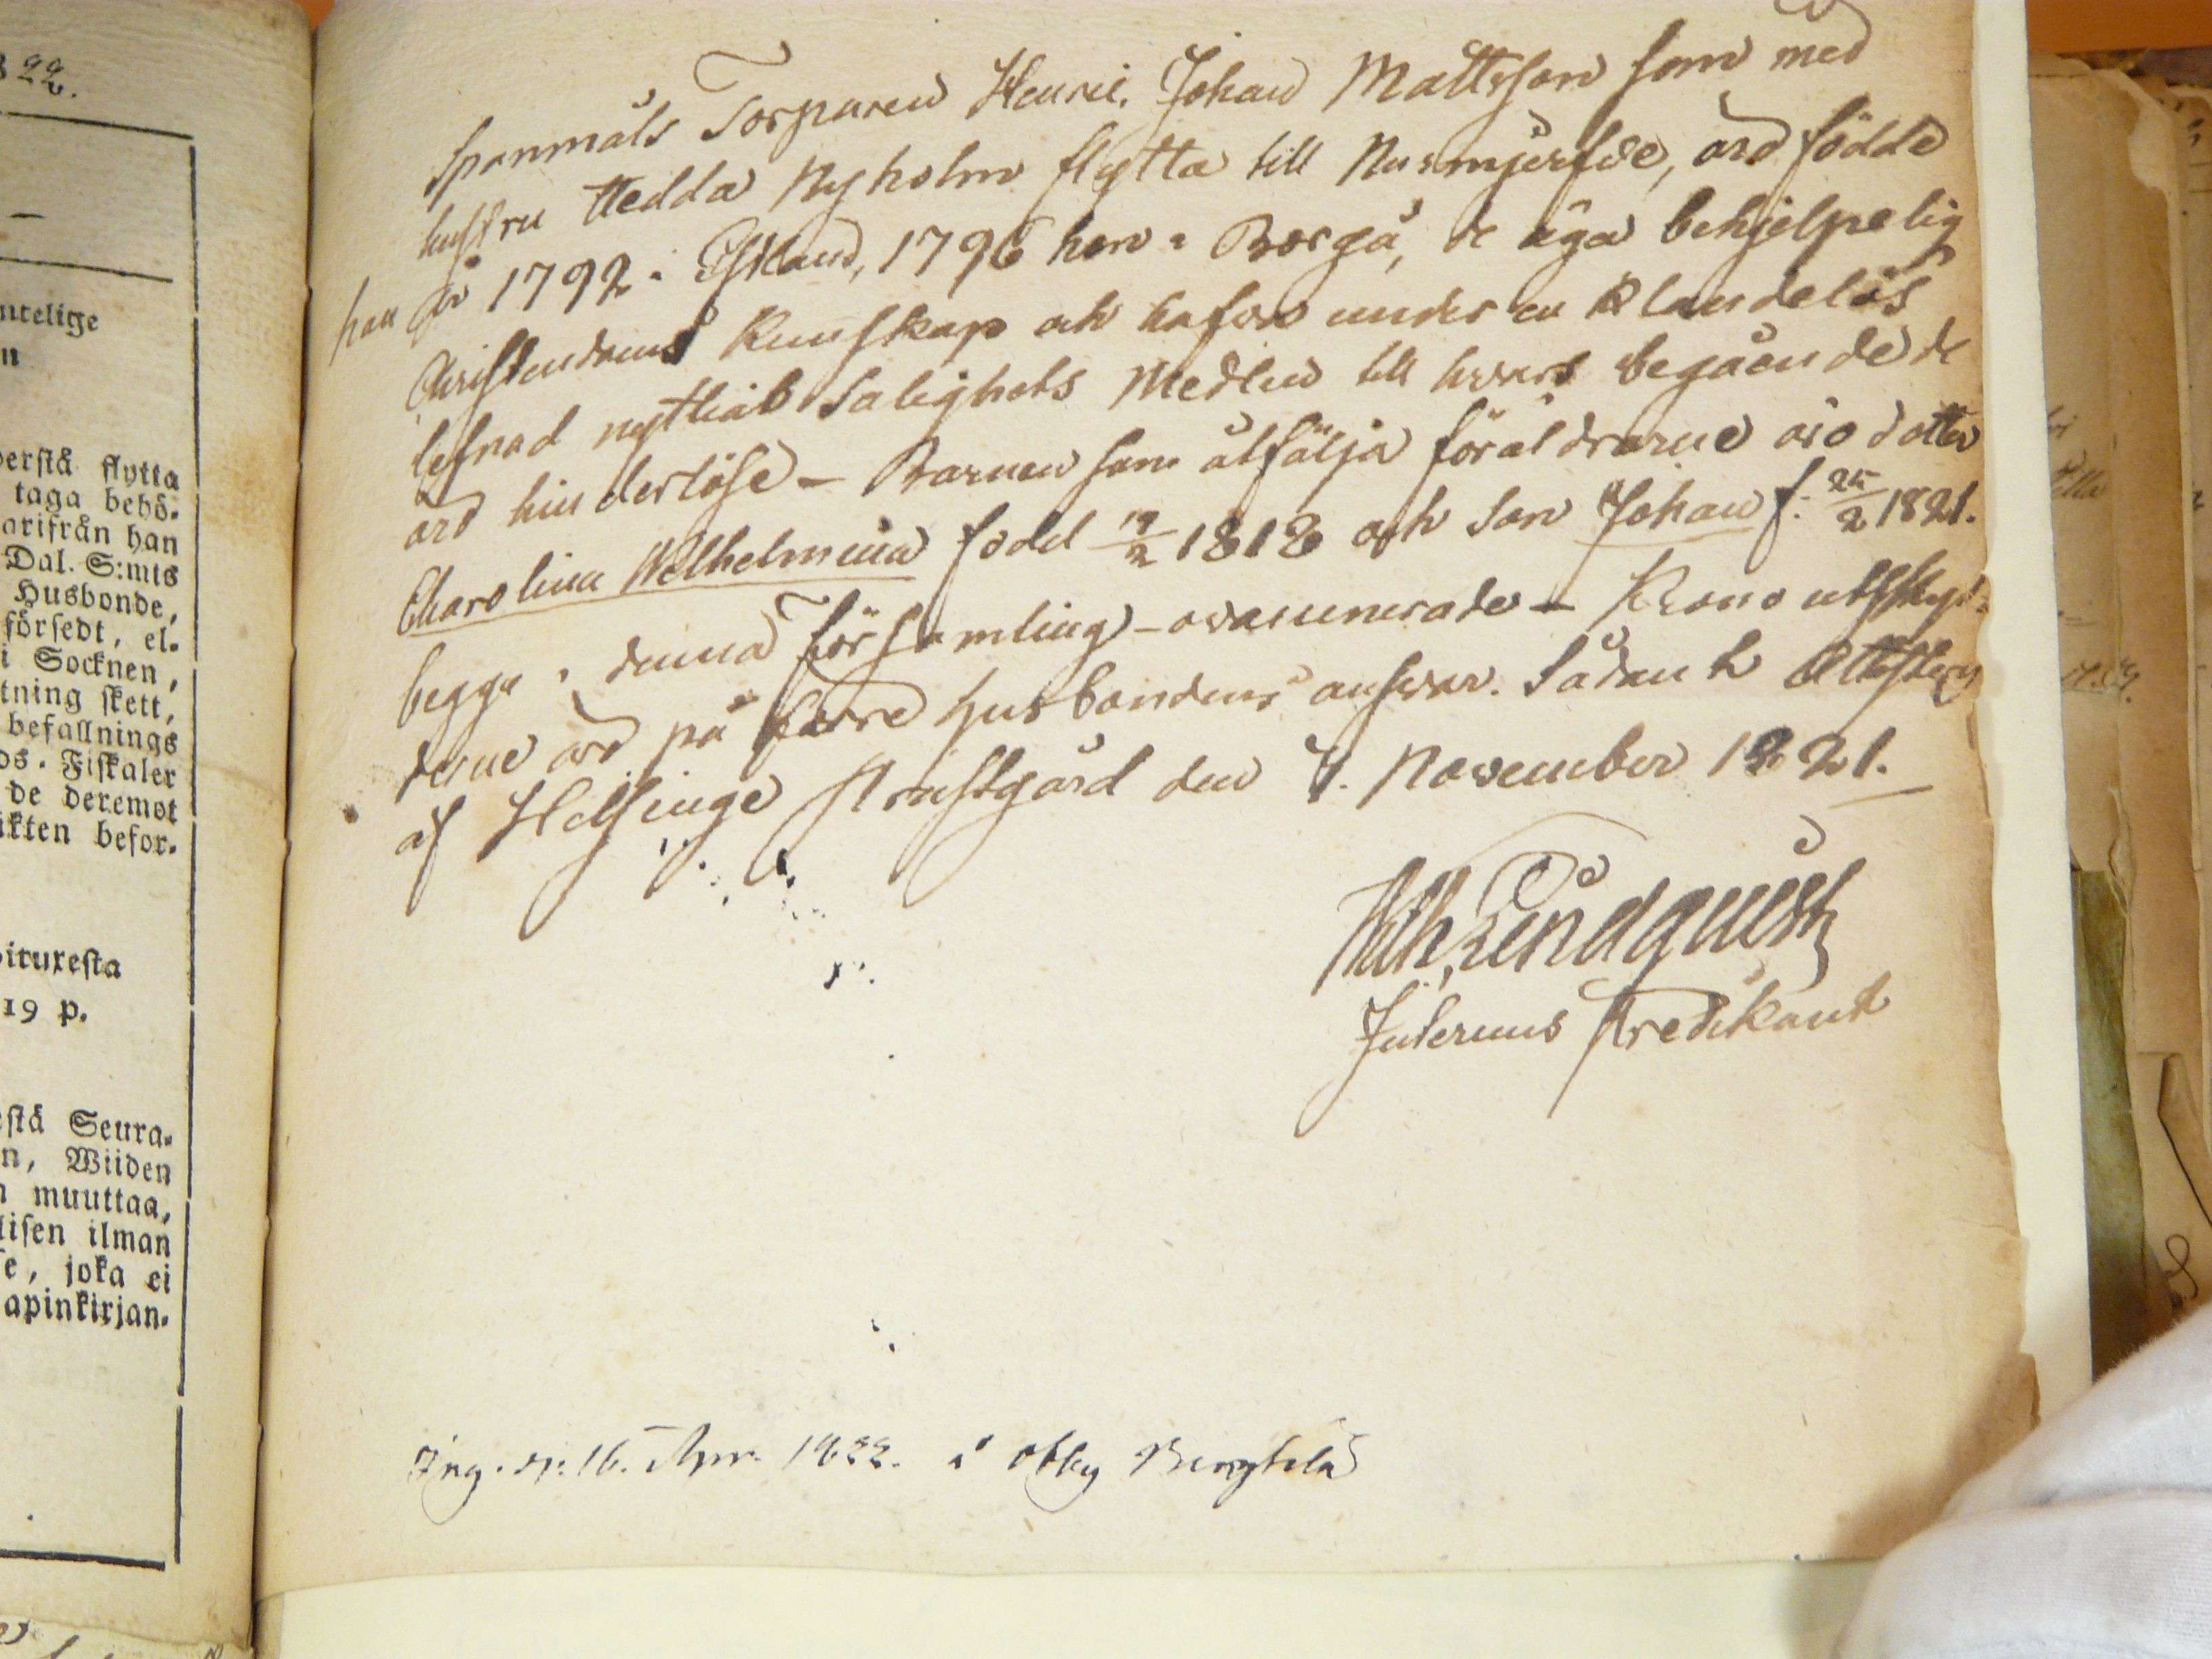 22.
ntelige
n
derstå flytta
taga behö-
arifrån han
Dal. S:mts
Husbonde,
försedt, el-
i Socknen,
tning skett,
befallnings
ds-Fiskaler
de deremot
ikten befor-
ituxesta
19 p.
stä Seura-
n, Wiiden
muuttaa,
lisen ilman
e, joka ei
apinkirjan-
Spanmåls Torparen Henric Johan Mattsson som med
hustru Hedda Nyholm flytta till Nurmijerfve, äro födde
han år 1792 i Estland, 1796 hon i Borgå, de äga behjelpelig
Christendoms Kunskap och hafva under en Klanderlös
lefnad nyttiat Salighets Medlen till hvars begående de
äro hinderlöse – Barnen som åtfölja föräldrarne äro dotter
Charolina Wilhelmina född 19/2 1818 och Son Johan f: 25/2 1821.
begge i denna församling – ovaccinerade – Krono utskyl-
derne äro på förre husbondens ansvar. Sådant Attesteras
af Helsinge Prästgård den 7. November 1821.
Wilh. Lindquist
Interims Predikant
Ing. d. 16. Apr. 1822. i Obby Berghila